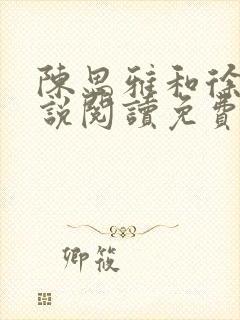 陳思雅和徐
說閱讀免費
卿筱